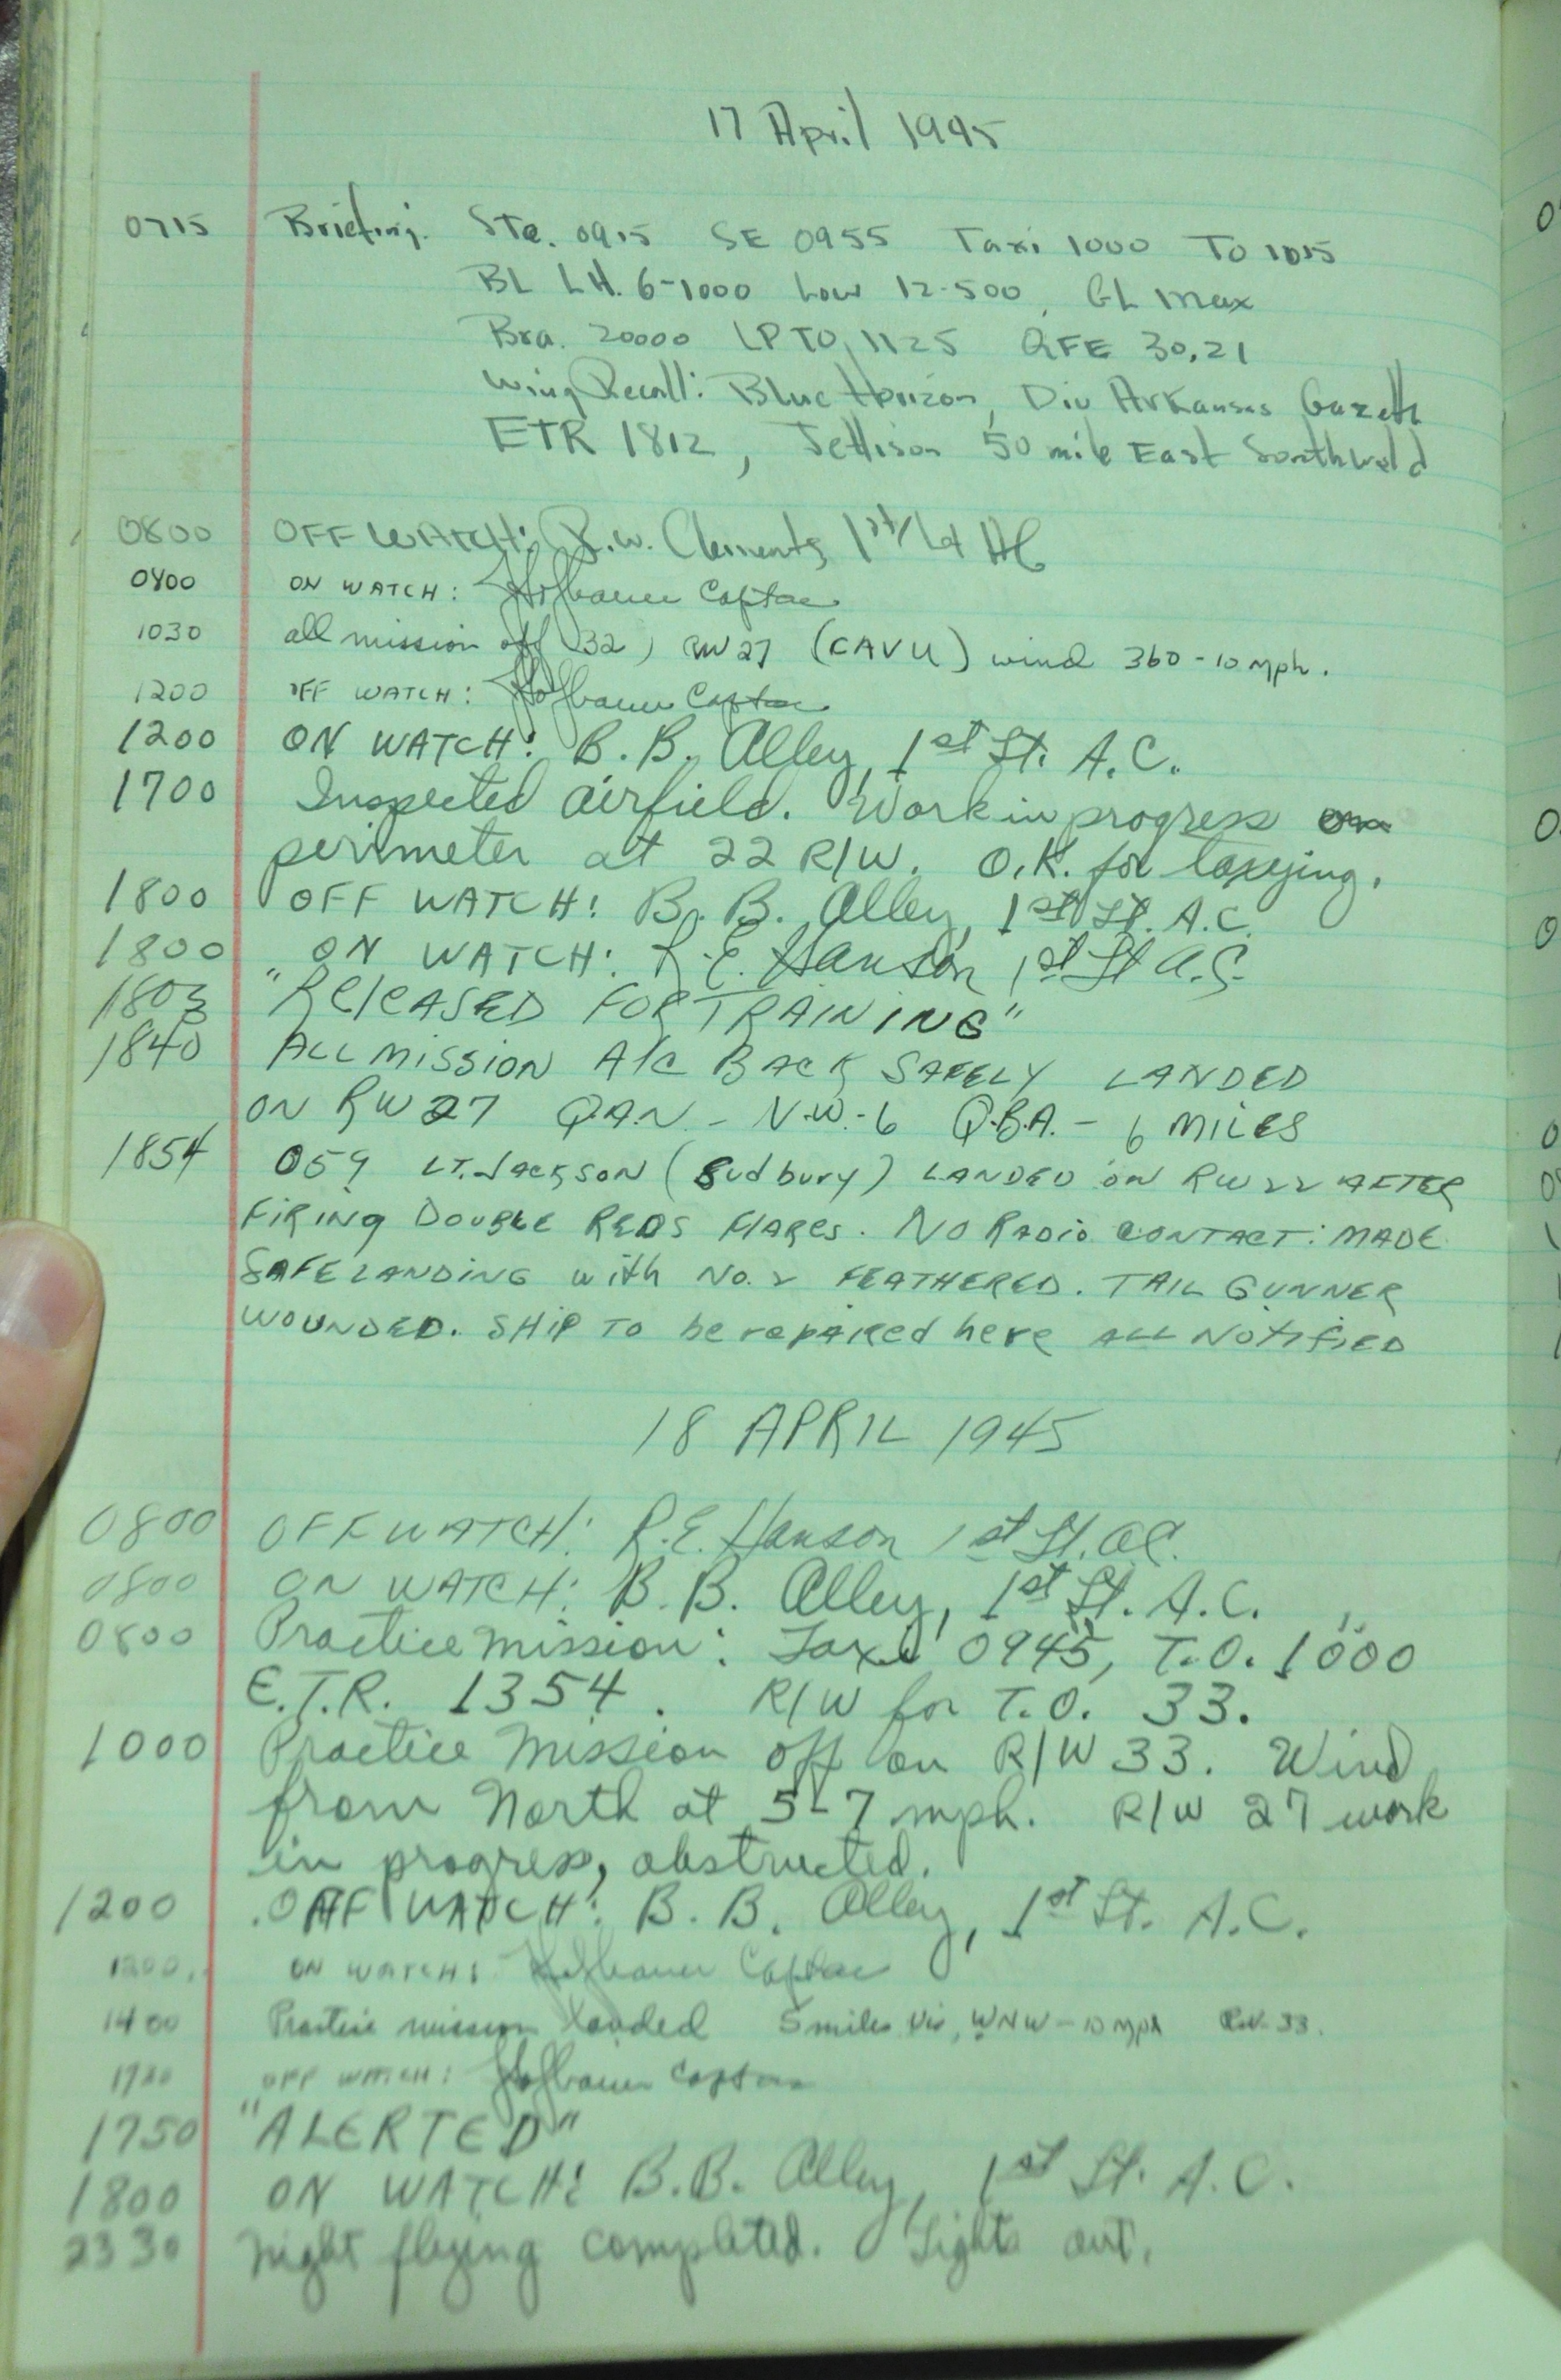 17 April 1945
0715 Briefing: Sta. 0915 SE 0955 Taxi 1000 To 1015
BL LH. 6-1000 Low 12-500, GL Max
Bra. 20000 LPTO 1125 QFE 30.21
Wing Recall: Blue Horizon, Div Arkansas Gazette
ETR 1812, Jettison 50 mile East Southwold
0800 OFF WATCH: R.W. Clements, 1st/Lt AC
0800 ON WATCH: Captain
1030 all mission off (32) RW 27 (CAVU) wind 360-10 mph.
1200 OFF WATCH: Captain
1200 ON WATCH: B. B. Alley, 1st Lt. A.C.
1700 Inspected airfield. Work in progress on
perimeter at 22 R/W. O.K. for taxying.
1800 OFF WATCH: B. B. Alley, 1st Lt. A.C.
1800 ON WATCH: R.E. Hanson 1st Lt A.C.
1803 "RElEASED FOR TRAINING"
1840 ALL MiSSION A/C BACK SAFELY LANDED
ON RW 27 Q.A.N. - N.W.-6 Q.B.A. - 6 MILES
1854 059 LT. JACKSON (Sudbury) LANDED ON RW 22 AFTER
FiRiNg DOUBLE REDS FlAREs. NO RADiO CONTACT: MADE
SAFE LANDING with NO. 2 FEATHERED. TAIL GUNNER
WOUNDED. SHiP TO be repAiRed here ALL NOTIFIED
18 APRIL 1945
0800 OFF WATCH: R.E. Hanson 1st Lt. AC.
0800 ON WATCH: B. B. Alley, 1st Lt. A.C.
0800 Practice mission: Taxi 0945, T.O. 1000
E.T.R. 1354. R/W for T.O. 33.
1000 Practice Mission off on R/W 33. Wind
from North at 5-7 mph. R/W 27 work
in progress, obstructed.
1200 OFF WATCH: B. B. Alley, 1st Lt. A.C.
1200 ON WATCH: Captain
1400 Practice mission landed 5 miles vis, WNW-10 mph RW 33.
OFF WATCH: Captain
1750 "ALERTED"
1800 ON WATCH: B.B. Alley, 1st Lt. A.C.
2330 Night flying completed. Lights out.